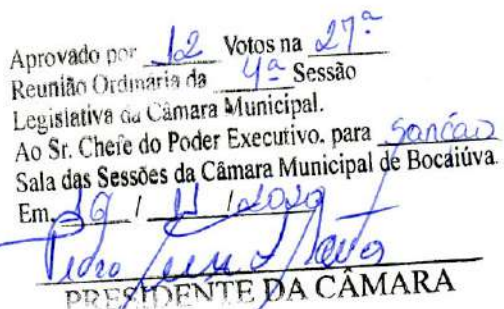 Aprovado por 12 Votos na 27ª
Reunião Ordinária da 4ª Sessão
Legislativa da Câmara Municipal.
Ao Sr. Chefe do Poder Executivo, para Sanção
Sala das Sessões da Câmara Municipal de Bocaiúva.
Em / 11 / 2020
Pedro
PRESIDENTE DA CÂMARA